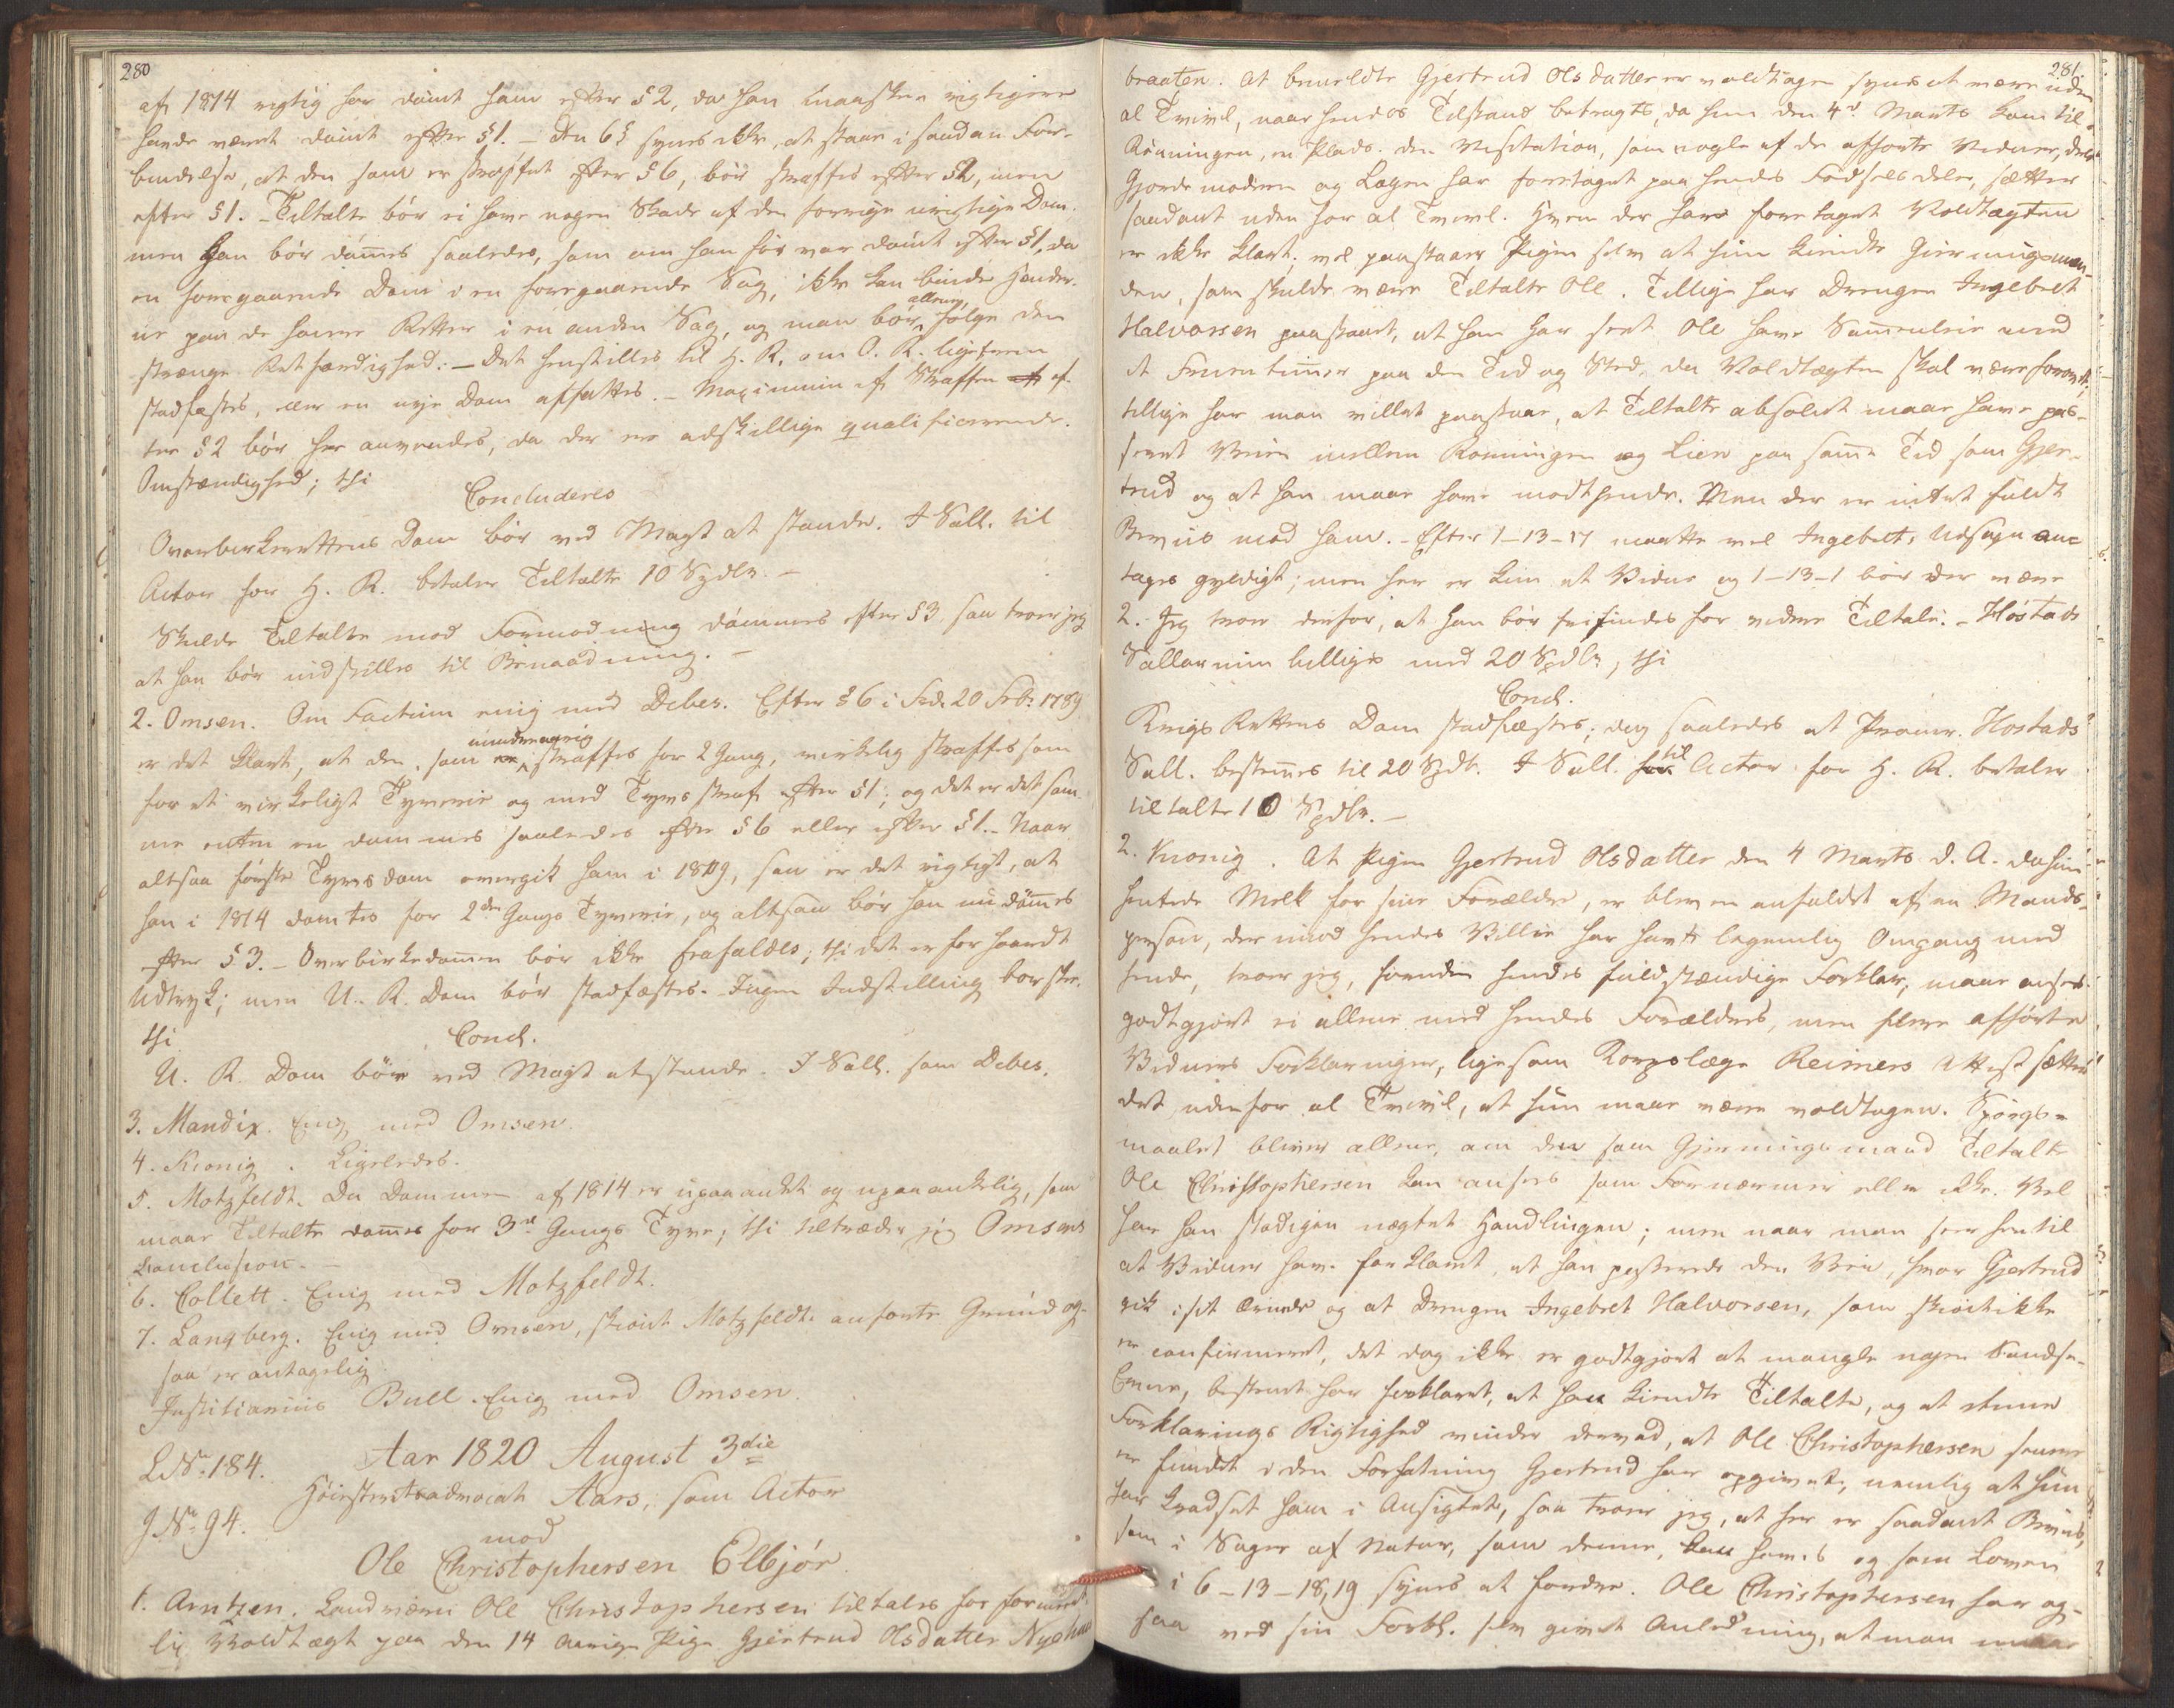 280
af 1814 rigtig har dømt ham efter § 2, da han maaskee rigtigere
havde været dømt efter § 1. – Den 6 § synes ikke, at staae i saadan For-
bindelse, at den som er straffet efter § 6, bør straffes efter § 2, men
efter § 1. – Tiltalte bør ei have nogen Skade af den forrige urigtige Dom.
men Han bør dømes saaledes, som om han før var dømt efter § 1, da
en foregaaende Dom i en foregaaende Sag, ikke kan binde Hænder-
ne paa de høiere Retter i en anden Sag, og man bør allene, følge den
strænge Retfærdighed. – Det henstilles til H. R. om O. R. ligefrem
stadfæstes, eller en nye Dom affattes. – Maximum af Straffen af ef-
ter § 2 bør her anvendes, da der ere adskillige qualificerende
Omstændighed; thi
Concluderes
Overbirkerettens Dom bør ved Magt at stande. I Sall. til
Actor for H. R. betaler Tiltalte 10 Spdlr. –
Skulde Tiltalte mod Formodning dømmes efter § 3, saa troer jeg
at han bør indstilles til Benaadning. –
2. Omsen. Om Factum enig med Debes. Efter § 6 i Frd. 20 Feb: 1789
er det klart, at den, som er mindreaarig straffes for 2 Gang, virkelig straffes som
for et virkeligt Tyverie og med Tyvs Straf efter § 1; og det er det sam-
me enten en dømmes saaledes efter § 6 eller efter § 1. – Naar
altsaa første Tyvsdom overgik ham i 1809, saa er det rigtigt, at
han i 1814 dømtes for 2den Gangs Tyverie, og altsaa bør han nu dømes
efter § 3. – Overbirkedomen bør ikke frafaldes; thi det er for haardt
Udtryk; men U. R. Dom bør stadfæstes. Ingen Indstilling bør skee.
thi
Concl.
U. R. Dom bør ved Magt at stande. I Sall. som Debes.
3. Mandix. Enig med Omsen.
4. Kronig. Ligeledes.
5. Motzfeldt. Da Dommen af 1814 er upaaanket og upaaankelig, saa
maae Tiltalte dømes for 3die Gangs Tyve; thi tiltræder jeg Omsens
Conclusion. –
6. Collett. Enig med Motzfeldt.
7. Langberg. Enig med Omsen, skiønt Motzfeldts anførte Grund og-
saa er antagelig.
Justitiarius Bull. Enig med Omsen.
L. No: 184. Aar 1820 August 3die
Høiesteretsadvocat Aars, som Actor
J. No: 94.
mod
Ole Christophersen Elbjør
1. Arntzen. Landværn Ole Christophersen tiltales for
lig Voldtægt paa den 14 aarige Pige Gjertrud Olsdatter
281.
braaten. At bemeldte Gjertrud Olsdatter er voldtagen synes at være uden
al Tvivl, naar hendes Tilstand betragtes, da hun den 4de Marts kom til
Rønningen, en Plads. Den Visitation, som nogle af de afhørte Vidner,
Gjordemoderen og Lægen har foretaget paa hendes Fødselsdele, sætter
saadant uden for al Tvivl. Hvem der have foretaget Voldtægten
er ikke klart; vel paastaaer Pigen selv at hun kiendte Gierningsman-
den, som skulde være Tiltalte Ole. Tillige har Drengen Ingebret
Halvorsen paastaaet, at han har seet Ole have Samleie med
et Fruentimer paa den Tid og Sted, da Voldtægten skal være forøvet;
tillige har man villet paastaae, at Tiltalte absolut maae have pas-
seret Veien mellem Rønningen og Lien paa same Tid som Gjer-
trud og at han maae have mødt hende. Men der er intet fuldt
Beviis mod ham. – Efter 1–13–17 maatte vel Ingebrets Udsagn an-
tages gyldigt; men her er kun et Vidne og 1–13–1 bør der være
2. Jeg troer derfor, at han bør frifindes for videre Tiltale. – Høstads
Sallarium billiges med 20 Spdlr, thi
Concl.
Krigs Rettens Dom stadfæstes; dog saaledes at Procur. Høstads
Sall. bestemes til 20 Spdlr. I Sall. for til Actor for H. R. betaler
tiltalte 10 Spdlr. –
2. Kronig. At Pigen Gjertrud Olsdatter den 4 Marts d. A. da hun
hentede Melk for sine Forældre, er bleven anfaldet af en Mands-
person, der mod hendes Villie har havt legemlig Omgang med
hende, troer jeg, foruden hendes fuldstændige Forklar, maae ansees
godtgjort ei allene med hendes Forældres, men flere afhørte
Vidners Forklaringer, ligesom Korpslæge Reimers Attest sætter
det udenfor al Tvivl, at hun maae være voldtagen. Spørgs-
maalet bliver allene, om den som Gjerningsmand Tiltalte
Ole Christophersen kan ansees som Fornærmer eller ikke. Vel
har han stadigen nægtet Handlingen; men naar man seer hen til
at Vidner have forklaret, at han passerede den Vei, hvor Gjertrud
gik i sit Ærinde og at Drengen Ingebret Halvorsen, som skiønt ikke
er confirmeret, det dog ikke er godtgjort at mangle nogen Sandse-
Evne, bestemt har forklaret, at han kiendte Tiltalte, og at denne
Forklarings Rigtighed vinder derved, at Ole Christophersen senere
er fundet i den Forfatning Gjertrud har opgivet, nemlig at hun
har kradset ham i Ansigtet, saa troer jeg, at her er saadant Beviis,
som i Sager af Natur, som denne, kan haves og som Loven
i 6–13–18,19 synes at fordre. Ole Christophersen har og-
saa ved sin Forkl. selv givet Anledning, at man maae